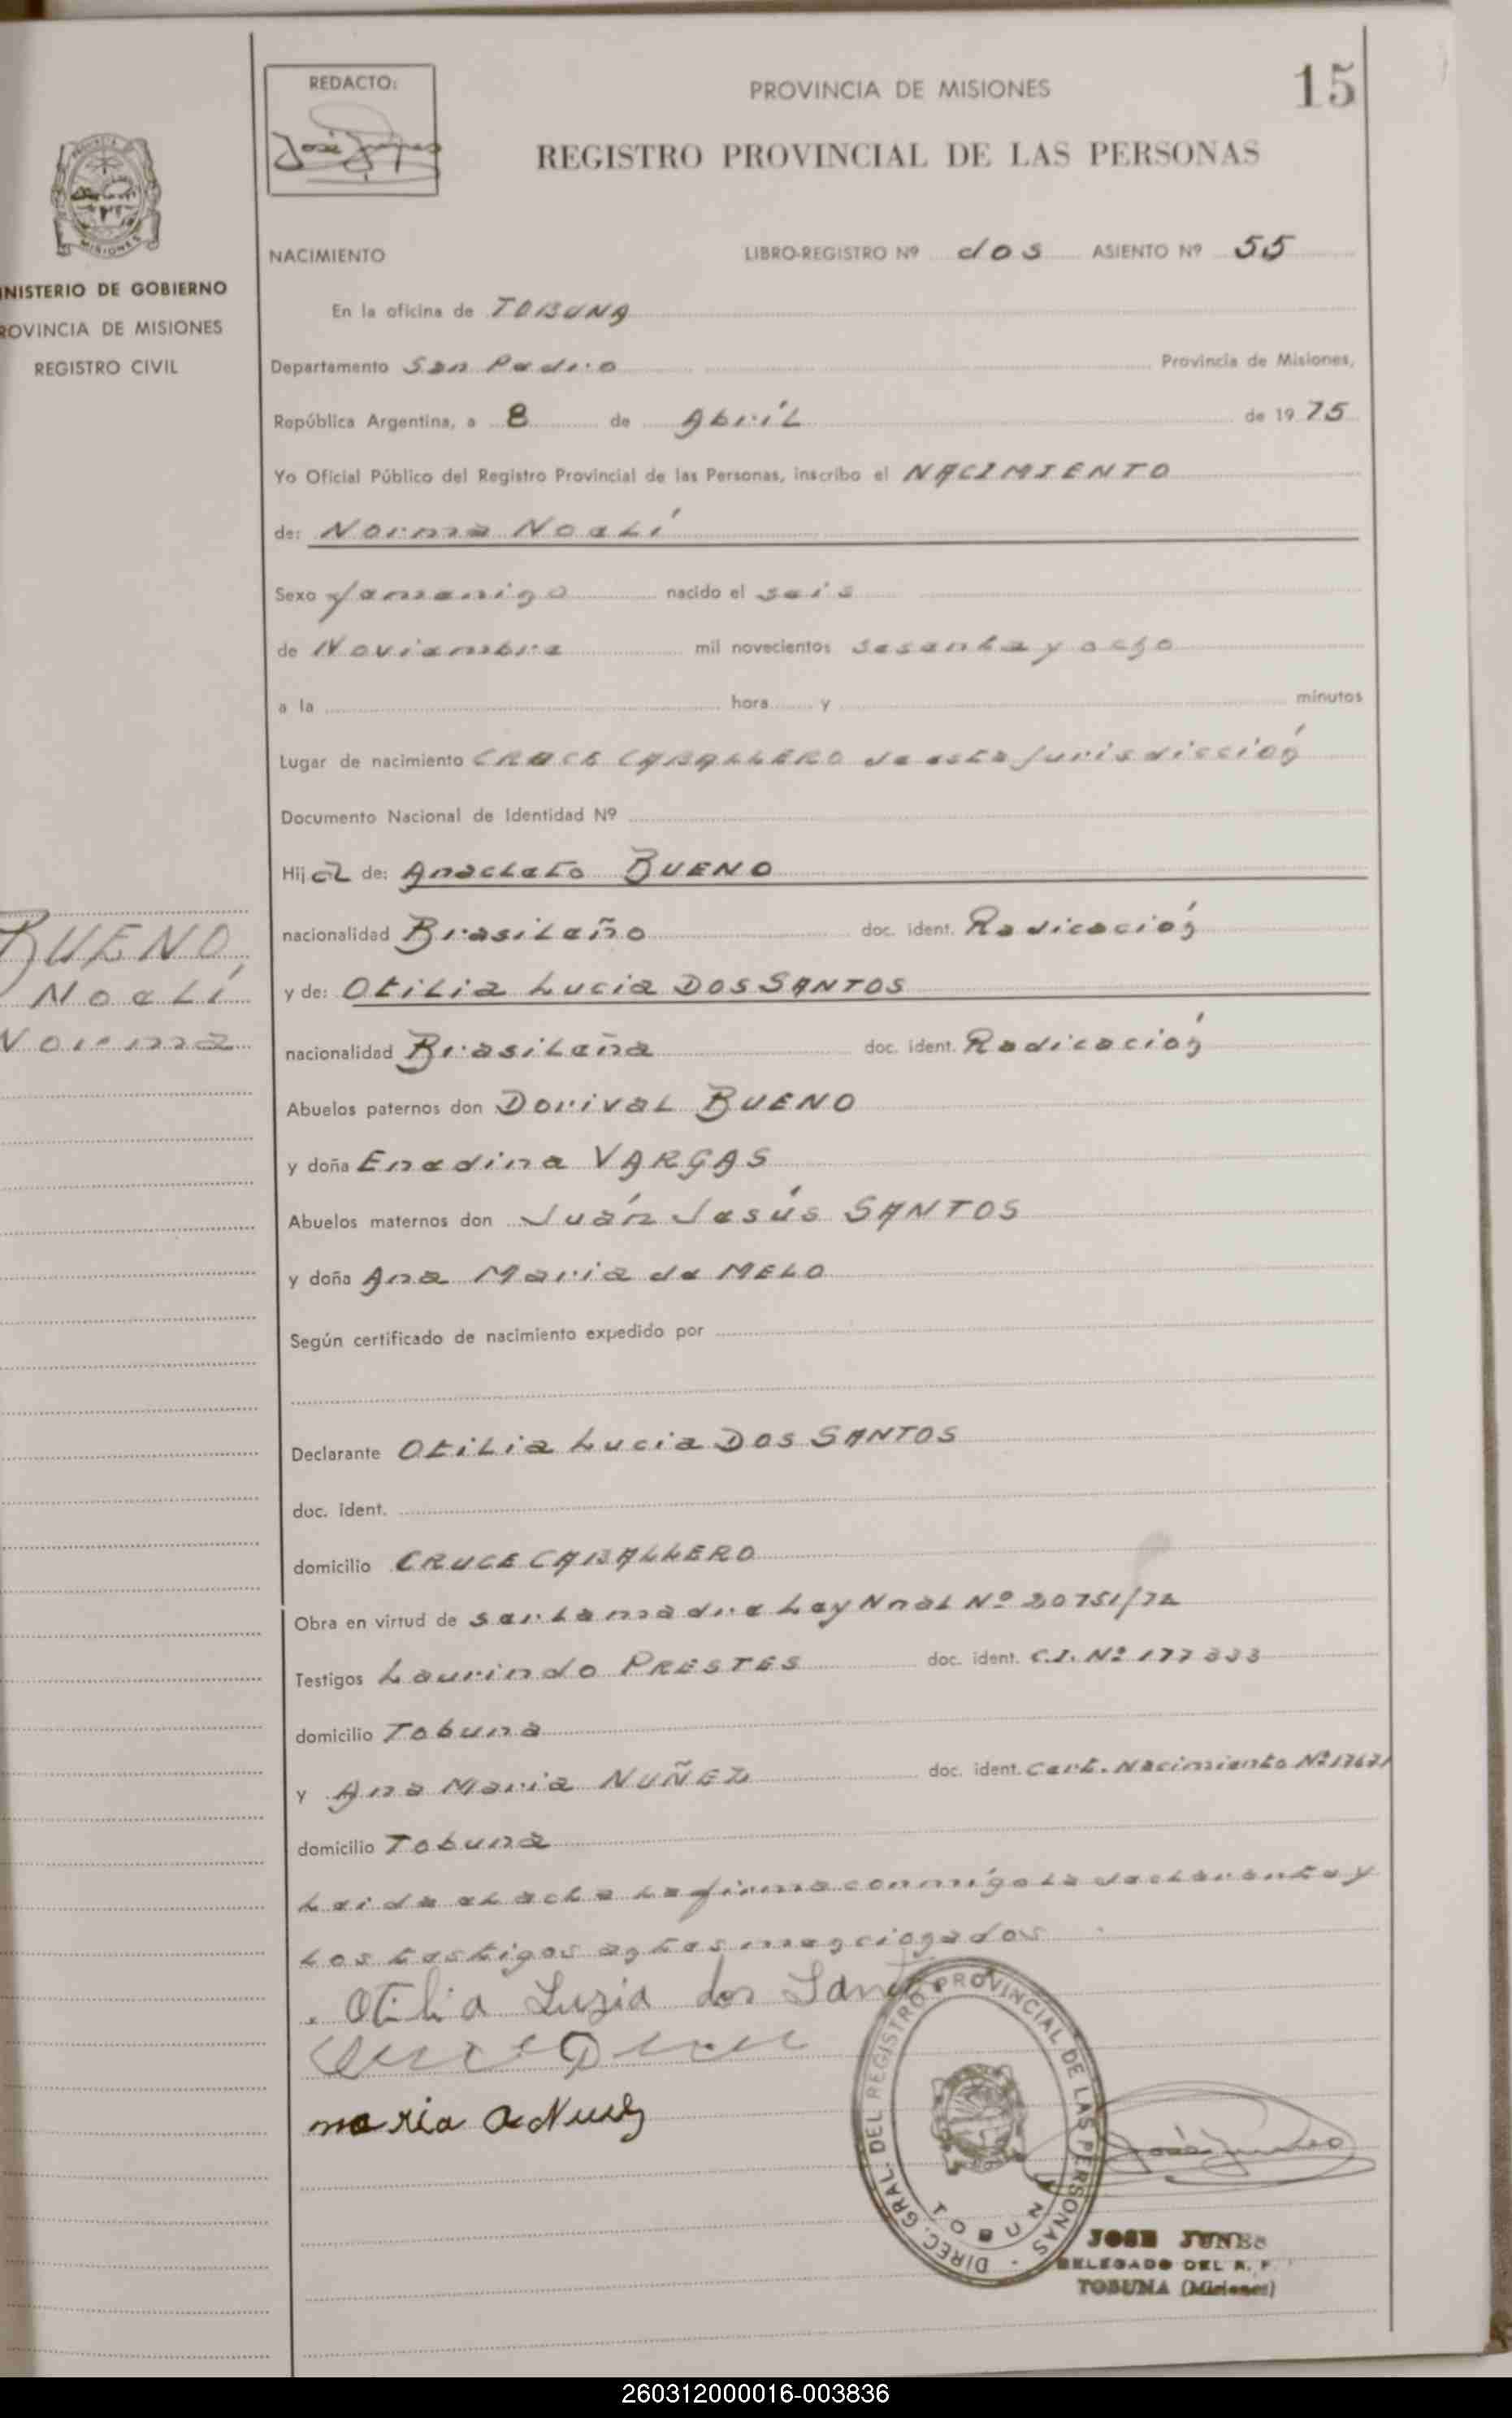 REDACTO:
PROVINCIA DE MISIONES
15
REGISTRO PROVINCIAL DE LAS PERSONAS
MISIONES
INISTERIO DE GOBIERNO
ROVINCIA DE MISIONES
REGISTRO CIVIL
NACIMIENTO LIBRO-REGISTRO Nº dos ASIENTO Nº 55
En la oficina de TOBUNA
Departamento San Pedro Provincia de Misiones,
República Argentina, a 8 de Abril de 1975
Yo Oficial Público del Registro Provincial de las Personas, inscribo el NACIMIENTO
de: Norma Noelí
Sexo femenino nacido el seis
de Noviembre mil novecientos sesenta y ocho
a la hora y minutos
Lugar de nacimiento CRUCE CABALLERO de esta Jurisdicción
Documento Nacional de Identidad Nº
Hija de: Anacleto BUENO
nacionalidad Brasileño doc. ident. Radicación
BUENO,
Noelí
Norma
y de: Otilia Lucia DOS SANTOS
nacionalidad Brasileña doc. ident. Radicación
Abuelos paternos don Dorival BUENO
y doña Enedina VARGAS
Abuelos maternos don Juán Jesús SANTOS
y doña Ana Maria de MELO
Según certificado de nacimiento expedido por
Declarante Otilia Lucia DOS SANTOS
doc. ident.
domicilio CRUCE CABALLERO
Obra en virtud de ser la madre Ley Nnal Nº 20751/72
Testigos Laurindo PRESTES doc. ident. C.I. Nº 177333
domicilio Tobuna
y Ana Maria NUÑEZ doc. ident. Cert. Nacimiento Nº 17671
domicilio Tobuna
Leida el acta la firma conmigo la declarante y
los testigos antes mencionados
Otilia Luzia dos Santos
maria
DIREC. GRAL. DEL REGISTRO PROVINCIAL DE LAS PERSONAS
TOBUN
JOSE JUNES
DELEGADO DEL R. P.
TOBUNA (Misiones)
260312000016-003836